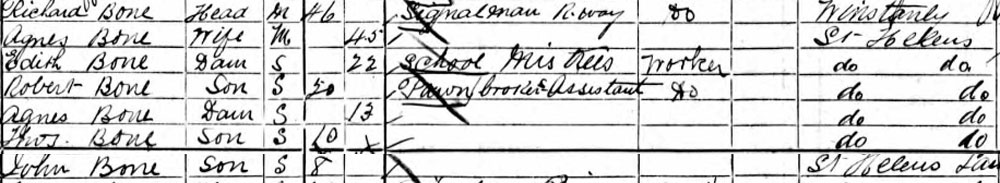 Richard Bone Head M 46 Signalman R.way Do Winstanley
Agnes Bone Wife M 45 St Helens
Edith Bone Daur S 22 School Mistress Worker do do
Robert Bone Son S 20 Pawnbrokers Assistant Do do do
Agnes Bone Daur S 13 do do
Thos. Bone Son S 10 do do
John Bone Son S 8 St Helens Lan